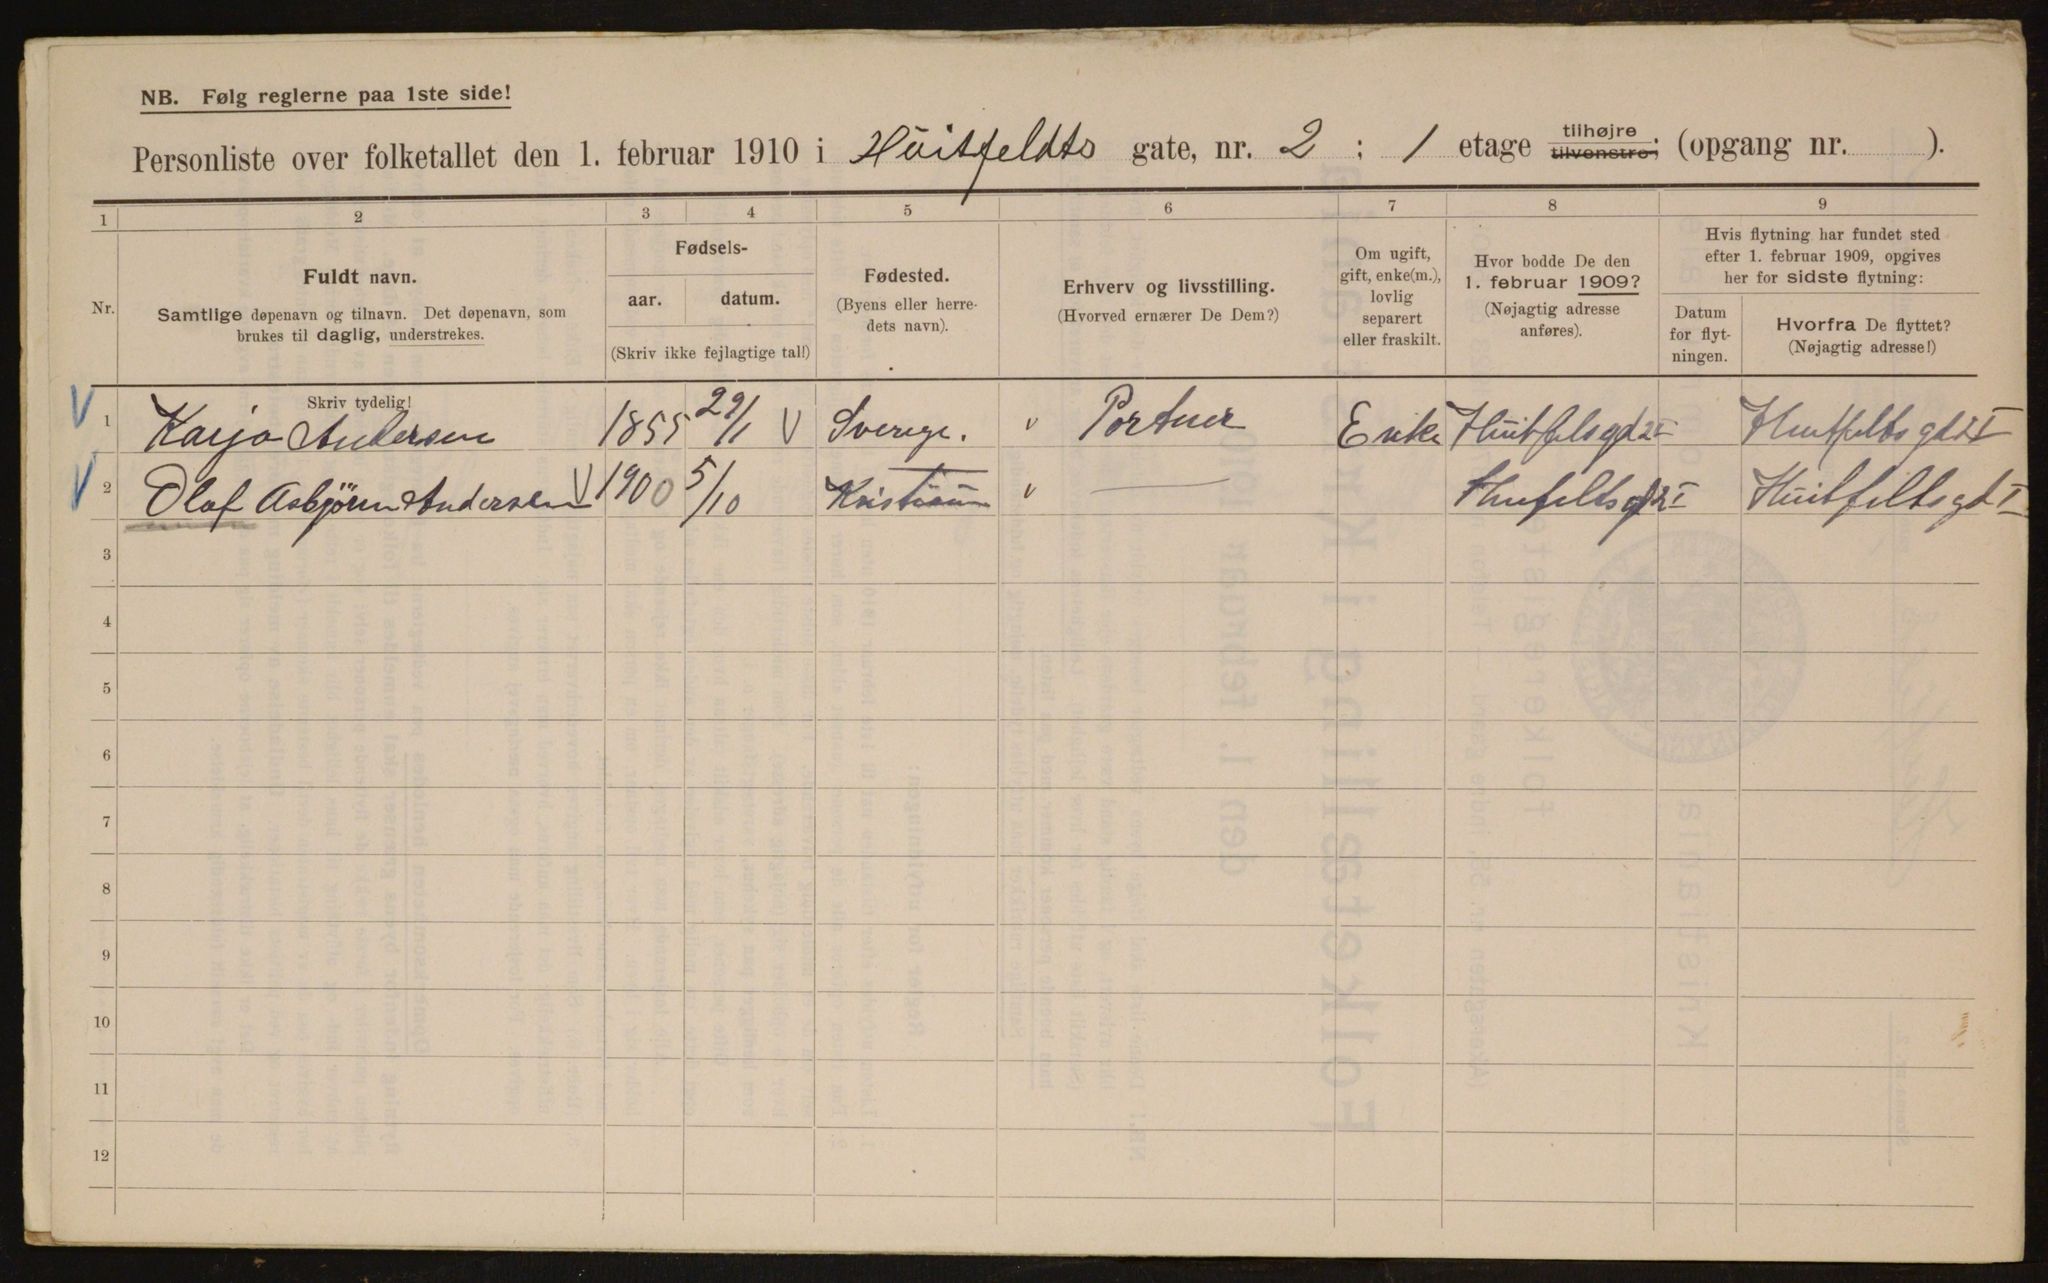 NB. Følg reglerne paa 1ste side!
Personliste over folketallet den 1. februar 1910 i Huitfeldts gate, nr. 2 ; 1 etage tilhøjre tilvenstre; (opgang nr. ).
1 2 3 4 5 6 7 8 9
Nr.
Fuldt navn.
Samtlige døpenavn og tilnavn. Det døpenavn, som
brukes til daglig, understrekes.
Skriv tydelig!
Fødsels-
aar. datum.
(Skriv ikke fejlagtige tal!)
Fødested.
(Byens eller herre-
dets navn).
Erhverv og livsstilling.
(Hvorved ernærer De Dem?)
Om ugift,
gift, enke(m.),
lovlig
separert
eller fraskilt.
Hvor bodde De den
1. februar 1909?
(Nøjagtig adresse
anføres).
Hvis flytning har fundet sted
efter 1. februar 1909, opgives
her for sidste flytning:
Datum
for flyt-
ningen.
Hvorfra De flyttet?
(Nøjagtig adresse!)
1 Karja Andersen 1855 29/1 Sverige. Portner Enke Huitfelsgd 2 I Huitfeltsgd 2 I
2 Olaf Asbjörn Andersen 1900 5/10 Kristiania — Huitfeltsgd 2 I Huitfeltsgd I
3
4
5
6
7
8
9
10
11
12